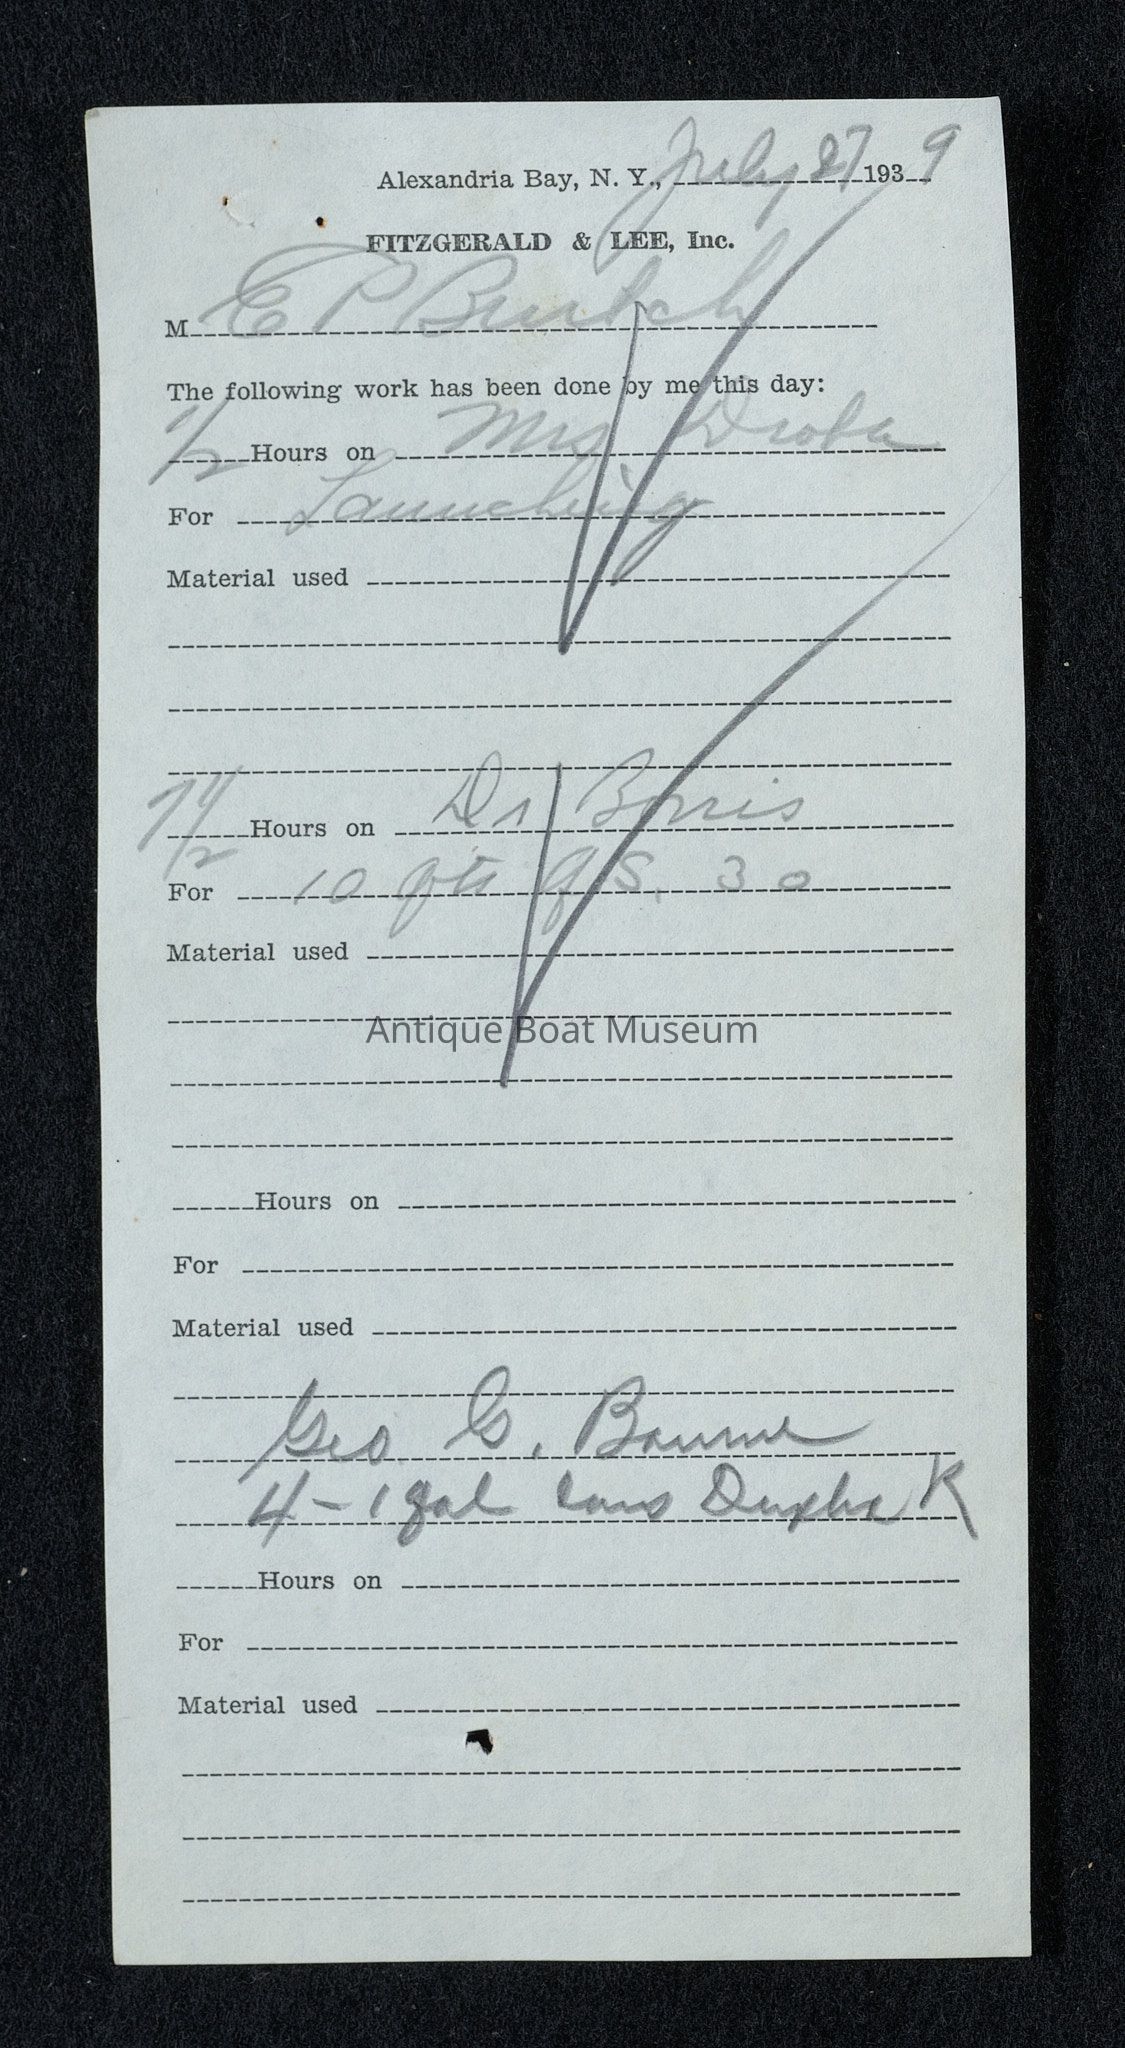 Alexandria Bay, N. Y., July 27 1939
FITZGERALD & LEE, Inc.
M E P Burtch
The following work has been done by me this day:
1/2 Hours on Mrs
For Launching
Material used
7 1/2 Hours on Dr Borris
For 10 qts S. 30
Material used
Antique Boat Museum
Hours on
For
Material used
Geo. G. Bourne
4 - 1 gal cans
Hours on
For
Material used